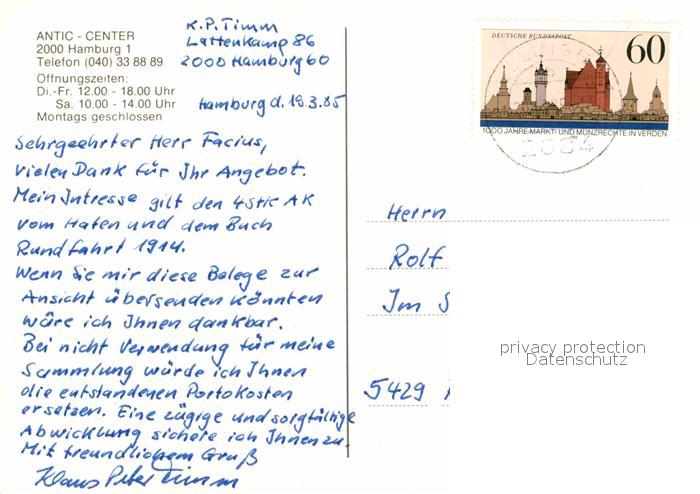 ANTIC - CENTER
2000 Hamburg 1
Telefon (040) 33 88 89
Öffnungszeiten:
Di.-Fr. 12.00 - 18.00 Uhr
Sa. 10.00 - 14.00 Uhr
Montags geschlossen
K.P. Timm
Lattenkamp 86
2000 Hamburg 60
Hamburg d. 19.3.85
Sehrgeehrter Herr Facius,
vielen Dank für Ihr Angebot.
Mein Intresse gilt den 4 Stk AK
vom Hafen und dem Buch
Rundfahrt 1914.
Wenn Sie mir diese Belege zur
Ansicht übersenden könnten
wäre ich Ihnen dankbar.
Bei nicht Verwendung für meine
Sammlung würde ich Ihnen
die entstandenen Portokosten
ersetzen. Eine zügige und sorgfältige
Abwicklung sichere ich Ihnen zu.
Mit freundlichem Gruß
Klaus Peter Timm
DEUTSCHE BUNDESPOST
60
1000 JAHRE MARKT- UND MÜNZRECHTE IN VERDEN
Herrn
Rolf
Im
5429
privacy protection
Datenschutz